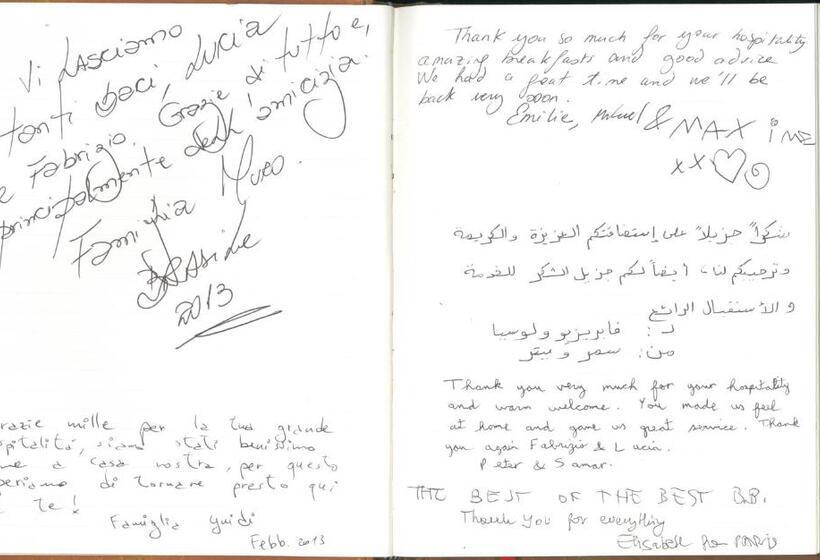 Vi Lasciamo
tanti baci, Lucia
e Fabrizio. Grazie di tutto e,
principalmente dell'amicizia.
Famiglia Muro.
Brasile
2013
razie mille per la tua grande
spitalità, siamo stati benissimo
me a casa nostra, per questo
periamo di tornare presto qui
te!
Famiglia Guidi
Febb. 2013
Thank you so much for your hospitality
amazing breakfasts and good advice
We had a great time and we'll be
back very soon.
Emilie, & MAXiME
xx
شكراً جزيلاً على إستضافتكم العزيزة والكريمة
وترحيبكم لنا، أيضاً لكم جزيل الشكر للخدمة
و الأستقبال الرائع
لـ: فابريزيو ولوسيا
من: سمر و بيتر
Thank you very much for your hospitality
and warm welcome. You made us feel
at home and gave us great service. Thank
you again Fabrizio & Lucia.
Peter & Samar.
THE BEST OF THE BEST B.B.
Thank You for everything
Elisabeth from PARIS